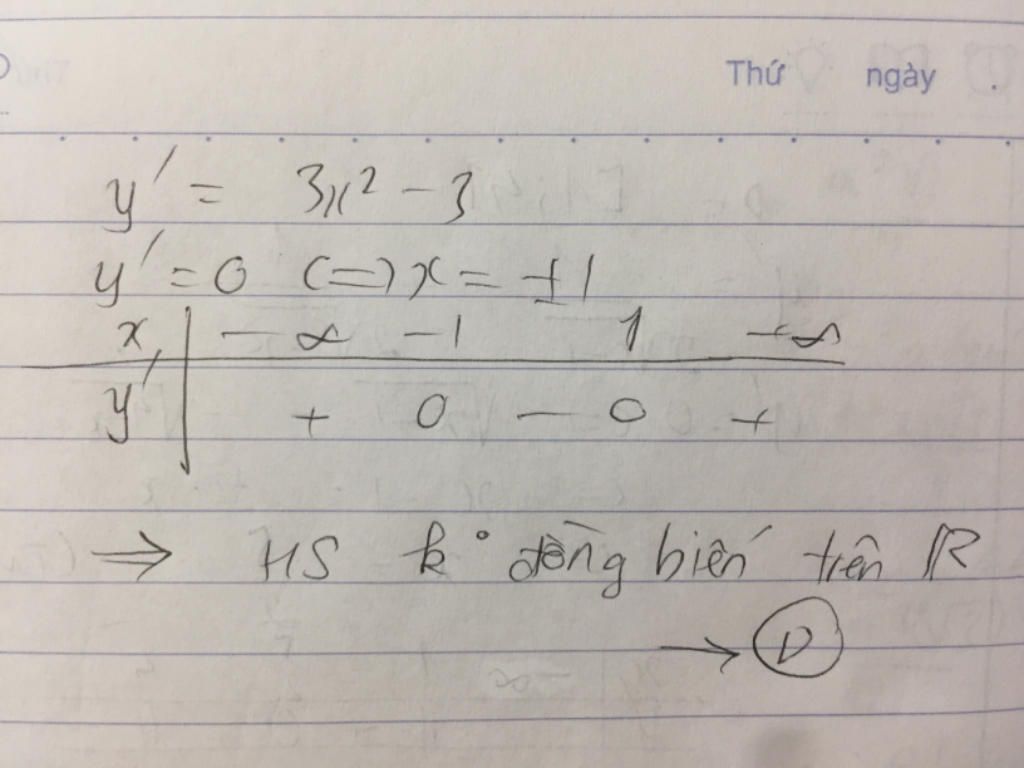 Thứ ngày .
y' = 3x² - 3
y' = 0 (=) x = ±1
x -∞ -1 1 +∞
y' + 0 - 0 +
=> HS k° đồng biến trên R
→ D